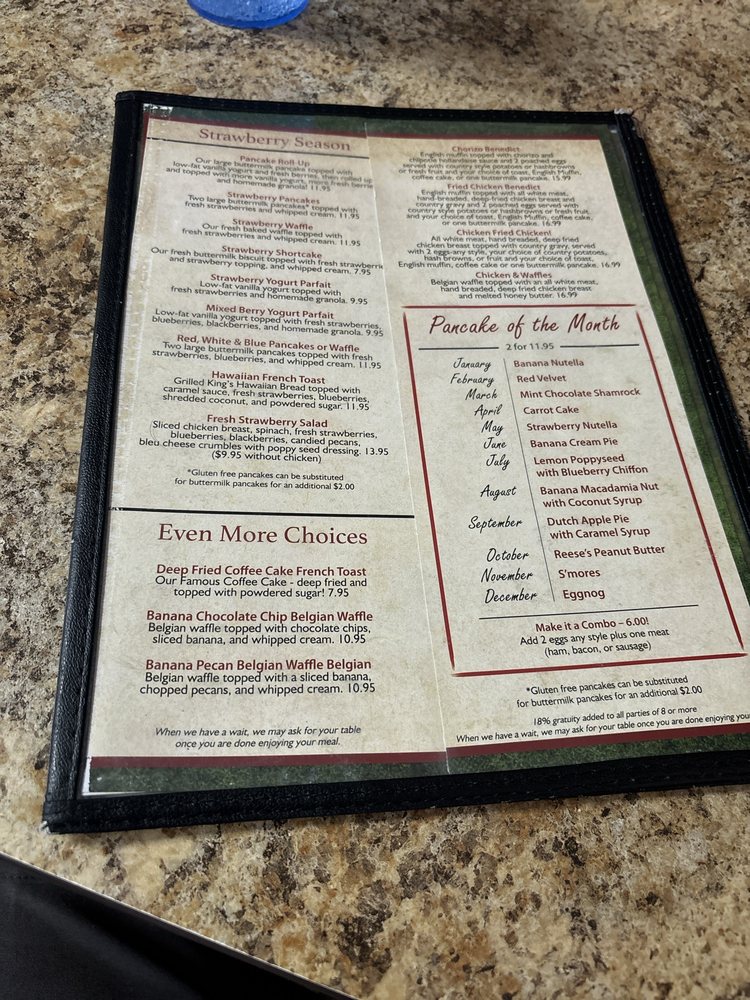 Strawberry Season
Pancake Roll-Up
Our large buttermilk pancake topped with
low-fat vanilla yogurt and fresh berries, then rolled up
and topped with more vanilla yogurt, more fresh berries
and homemade granola! 11.95
Strawberry Pancakes
Two large buttermilk pancakes* topped with
fresh strawberries and whipped cream. 11.95
Strawberry Waffle
Our fresh baked waffle topped with
fresh strawberries and whipped cream. 11.95
Strawberry Shortcake
Our fresh buttermilk biscuit topped with fresh strawberries
and strawberry topping, and whipped cream. 7.95
Strawberry Yogurt Parfait
Low-fat vanilla yogurt topped with
fresh strawberries and homemade granola. 9.95
Mixed Berry Yogurt Parfait
Low-fat vanilla yogurt topped with fresh strawberries,
blueberries, blackberries, and homemade granola. 9.95
Red, White & Blue Pancakes or Waffle
Two large buttermilk pancakes topped with fresh
strawberries, blueberries, and whipped cream. 11.95
Hawaiian French Toast
Grilled King's Hawaiian Bread topped with
caramel sauce, fresh strawberries, blueberries,
shredded coconut, and powdered sugar. 11.95
Fresh Strawberry Salad
Sliced chicken breast, spinach, fresh strawberries,
blueberries, blackberries, candied pecans,
bleu cheese crumbles with poppy seed dressing. 13.95
($9.95 without chicken)
*Gluten free pancakes can be substituted
for buttermilk pancakes for an additional $2.00
Even More Choices
Deep Fried Coffee Cake French Toast
Our Famous Coffee Cake - deep fried and
topped with powdered sugar! 7.95
Banana Chocolate Chip Belgian Waffle
Belgian waffle topped with chocolate chips,
sliced banana, and whipped cream. 10.95
Banana Pecan Belgian Waffle Belgian
Belgian waffle topped with a sliced banana,
chopped pecans, and whipped cream. 10.95
When we have a wait, we may ask for your table
once you are done enjoying your meal.
Chorizo Benedict
English muffin topped with chorizo and
chipotle hollandaise sauce and 2 poached eggs
served with country style potatoes or hashbrowns
or fresh fruit and your choice of toast, English Muffin,
coffee cake, or one buttermilk pancake. 15.99
Fried Chicken Benedict
English muffin topped with all white meat,
hand-breaded, deep-fried chicken breast and
country gravy and 2 poached eggs served with
country style potatoes or hashbrowns or fresh fruit,
and your choice of toast, English Muffin, coffee cake,
or one buttermilk pancake. 16.99
Chicken Fried Chicken!
All white meat, hand breaded, deep fried
chicken breast topped with country gravy, served
with 2 eggs-any style, your choice of country potatoes,
hash browns, or fruit and your choice of toast,
English muffin, coffee cake or one buttermilk pancake. 16.99
Chicken & Waffles
Belgian waffle topped with an all white meat,
hand breaded, deep fried chicken breast
and melted honey butter. 16.99
Pancake of the Month
2 for 11.95
January Banana Nutella
February Red Velvet
March Mint Chocolate Shamrock
April Carrot Cake
May Strawberry Nutella
June Banana Cream Pie
July Lemon Poppyseed
with Blueberry Chiffon
August Banana Macadamia Nut
with Coconut Syrup
September Dutch Apple Pie
with Caramel Syrup
October Reese's Peanut Butter
November S'mores
December Eggnog
Make it a Combo – 6.00!
Add 2 eggs any style plus one meat
(ham, bacon, or sausage)
*Gluten free pancakes can be substituted
for buttermilk pancakes for an additional $2.00
18% gratuity added to all parties of 8 or more
When we have a wait, we may ask for your table once you are done enjoying